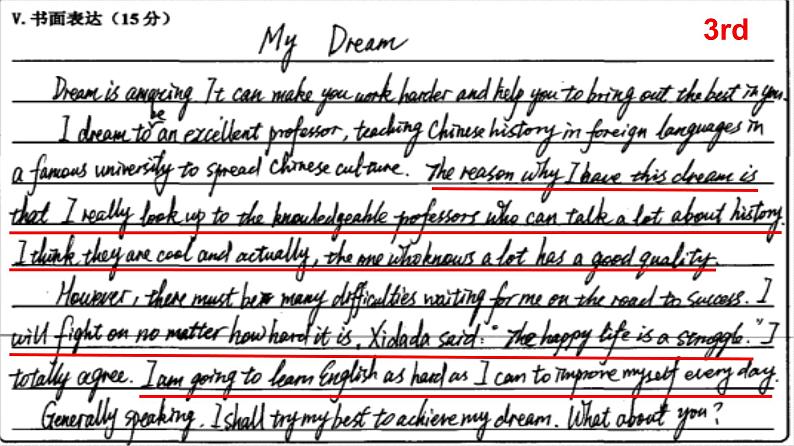 V. 书面表达（15分）
3rd
My Dream
Dream is amazing. It can make you work harder and help you to bring out the best in you.
I dream to be an excellent professor, teaching Chinese history in foreign languages in
a famous university to spread Chinese culture. The reason why I have this dream is
that I really look up to the knowledgeable professors who can talk a lot about history.
I think they are cool and actually, the one who knows a lot has a good quality.
However, there must be many difficulties waiting for me on the road to success. I
will fight on no matter how hard it is. Xidada said: "The happy life is a struggle." I
totally agree. I am going to learn English as hard as I can to improve myself every day.
Generally speaking, I shall try my best to achieve my dream. What about you?